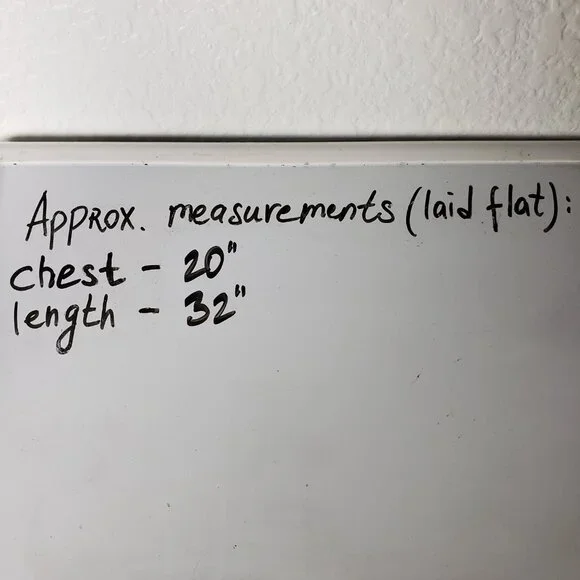 Approx. measurements (laid flat):
chest - 20"
length - 32"